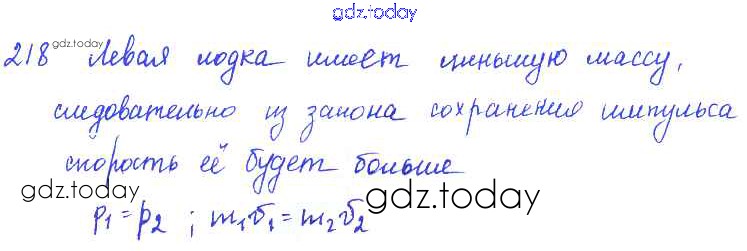 gdz.today
218 gdz.today Левая лодка имеет меньшую массу,
следовательно из закона сохранения импульса
скорость её будет больше
gdz.today
p₁=p₂ ; m₁v₁=m₂v₂ gdz.today